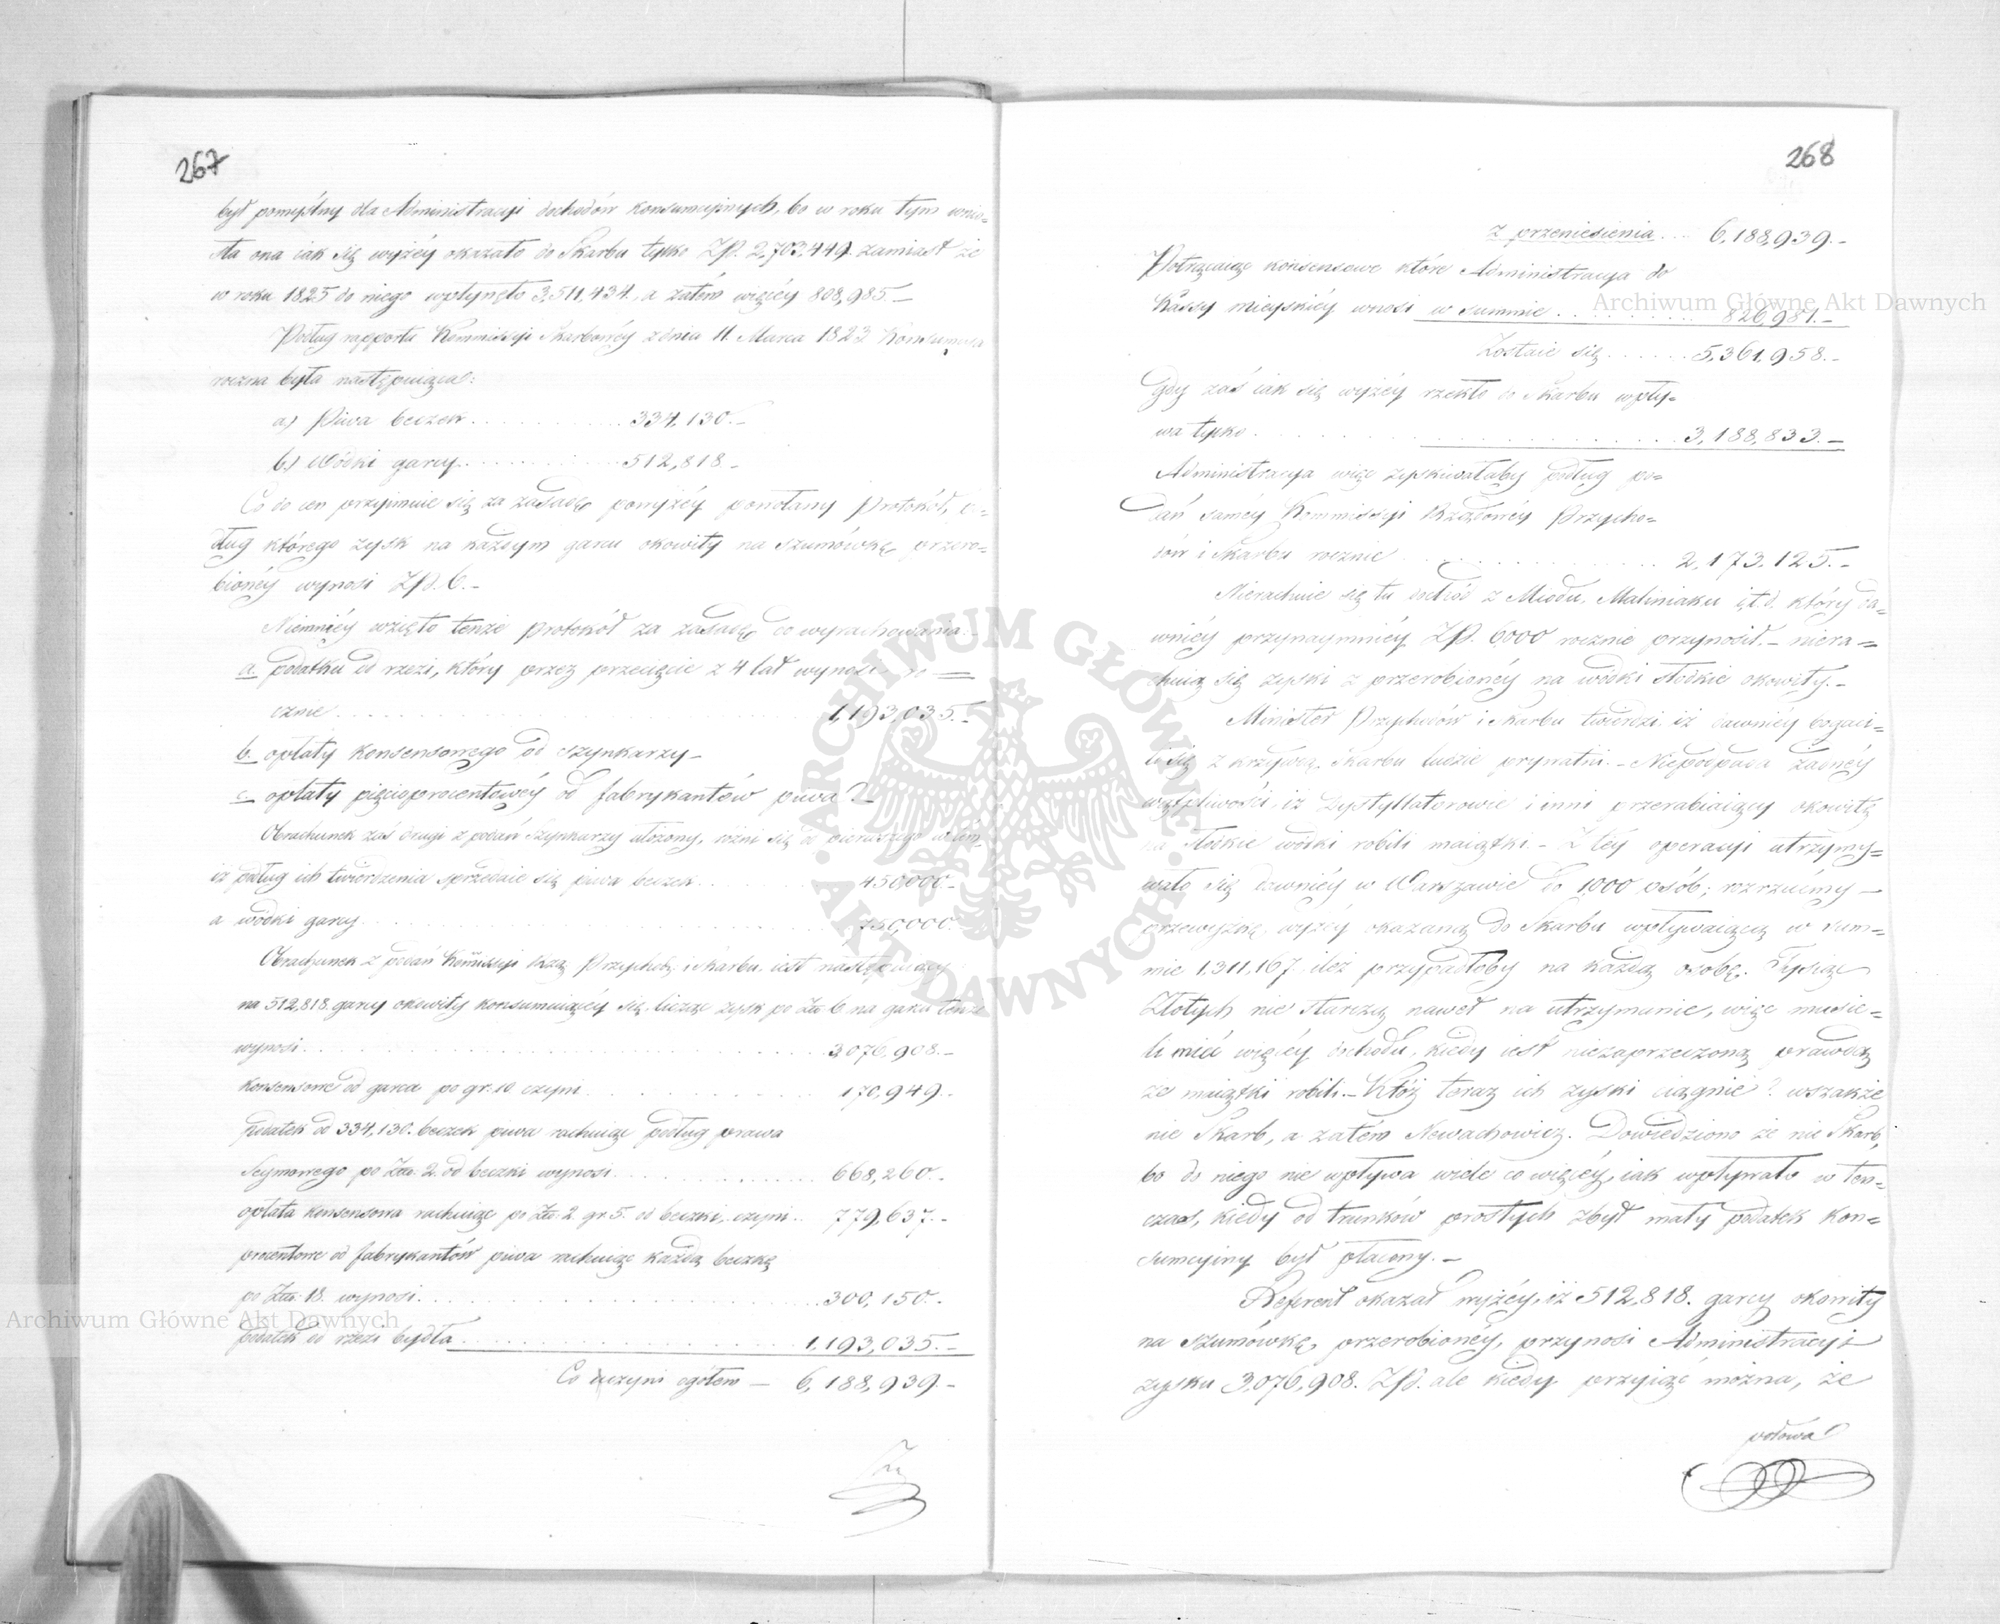 267
był pomyślny dla Administracyi dochodów konsumcyjnych, bo w roku tym wnio=
sła ona iak się wyżéy okazało do Skarbu tylko Złp. 2,703,449. zamiast że
w roku 1825 do niego wpłynęło 3,511,434, a zatém więcéy 808,985_
Podług rapportu Kommissyi Skarbowéy z dnia 11. Marca 1823 Konsumpcya
roczna była następuiąca:
a) Piwa beczek . . . . . . . . 334,130._
b.) Wódki garcy . . . . . . . . 512,818._
Co do cen przyimuie się za zasadę powyżéy powołany Protokół, po=
dług którego zysk na każdym garcu okowity na szumówkę przero=
bionéy wynosi Złp. 6._
Niemniéy wzięto tenże Protokół za zasadę do wyrachowania._
a. podatku od rzezi, który przez przecięcie z 4 lat wynosi ro=
cznie . . . . . . . . 1,193,035._
b. opłaty konsensowego od szynkarzy_
c. opłaty pięcioprocentowéy od fabrykantów piwa_
Obrachunek zaś drugi z podań Szynkarzy ułożony, różni się od pierwszego w tém,
iż podług ich twierdzenia sprzedaie się piwa beczek . . . . . 450,000._
a wódki garcy . . . . . . . . 750,000._
Obrachunek z podań Kommissyi Rzą: Przychodów i Skarbu, iest następuiący
na 512,818 garcy okowity konsumuiącéy się, licząc zysk po Złt: 6 na garcu tenże
wynosi . . . . . . . . 3,076,908._
Konsensowe od garca po gr. 10 czyni . . . . . . . . 170,949._
podatek od 334,130. beczek piwa rachuiąc podług prawa
Seymowego po Złt: 2 od beczki wynosi . . . . . . . . 668,260._
opłata konsensowa rachuiąc po Złt: 2 gr. 5. od beczki, czyni . . 779,637._
procentowe od fabrykantów piwa rachuiąc każdą beczkę
po Złt: 18. wynosi . . . . . . . . 300,150._
podatek od rzezi bydła . . . . . . . . 1,193,035._
Co uczyni ogółem _ 6,188,939._
268
z przeniesienia . . . 6,188,939._
Potrącaiąc konsensowe które Administracya do
Kassy mieyskiéy wnosi w summie . . . . . . . . 826,981._
Zostaie się . . . . . . 5,361,958._
Gdy zaś iak się wyżéy rzekło do Skarbu wpły=
wa tylko . . . . . . . . 3,188,833._
Administracya więc zyskiwałaby podług po=
dań saméy Kommissyi Rządowéy Przycho=
dów i Skarbu rocznie . . . . . . . . 2,173,125._
Nierachuie się tu dochód z Miodu, Maliniaku i t.d. który da=
wniéy przynaymniéy Złp. 6000 rocznie przynosił._ niera=
chuią się zyski z przerobionéy na wódki słodkie okowity._
Minister Przychodów i Skarbu twierdzi iż dawniéy bogaci=
li się z krzywdą Skarbu ludzie prywatni._ Niepodpada żadnéy
wątpliwości, iż Dystyllatorowie i inni przerabiaiący okowitę
na słodkie wódki robili maiątki_ Z téy operacyi utrzymy=
wało się dawniéy w Warszawie do 1000 osób; rozrzućmy_
przewyżkę wyżéy okazaną do Skarbu wpływaiącą w sum=
mie 1,311,167 ileż przypadłoby na każdą osobę. Tysiąc
Złotych nie starczą nawet na utrzymanie, więc musie=
li mieć więcéy dochodu, kiedy iest niezaprzeczoną prawdą
że maiątki robili._ Któż teraz ich zyski ciągnie? wszakże
nie Skarb, a zatém Newachowicz. Dowiedziono że nie Skarb,
bo do niego nie wpływa wiele co więcéy, iak wpływało w ten=
czas, kiedy od trunków prostych zbyt mały podatek kon=
sumcyiny był płacony._
Referent okazał wyżéy, iż 512,818. garcy okowity
na szumówkę, przerobionéy, przynosi Administracyi
zysku 3,076,908. Złp. ale kiedy przyiąć można, że
połowa
Archiwum Główne Akt Dawnych
Archiwum Główne Akt Dawnych
ARCHIWUM GŁÓWNE AKT DAWNYCH